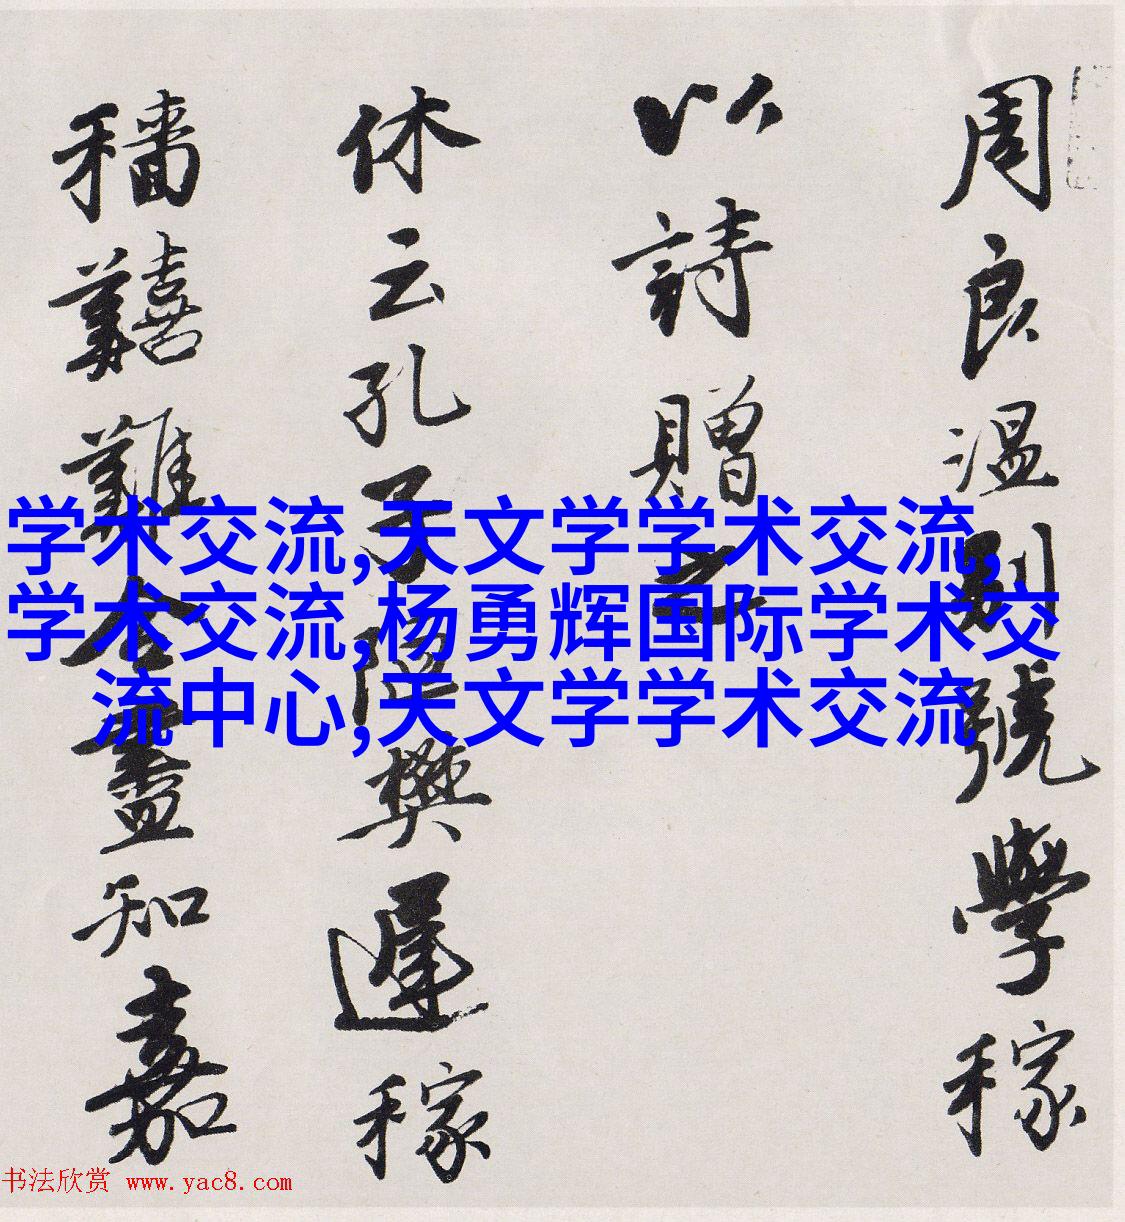 周良温别號學稼
以詩贈之
休云孔子隘樊遲稼
穡囏難合盡知嘉
学术交流,天文学学术交流,
学术交流,杨勇辉国际学术交
流中心,天文学学术交流
书法欣赏 www.yac8.com